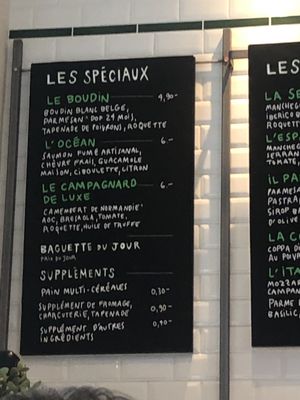 LES SPÉCIAUX
LE BOUDIN 4,90-
BOUDIN BLANC BELGE,
PARMESAN DOP 24 MOIS,
TAPENADE DE POIVRONS, ROQUETTE
L'OCÉAN 6.-
SAUMON FUMÉ ARTISANAL,
CHÈVRE FRAIS, GUACAMOLE
MAISON, CIBOULETTE, CITRON
LE CAMPAGNARD
DE LUXE 6.-
CAMEMBERT DE NORMANDIE
AOC, BRESAOLA, TOMATE,
ROQUETTE, HUILE DE TRUFFE
BAGUETTE DU JOUR
PRIX DU JOUR
SUPPLÉMENTS
PAIN MULTI-CÉRÉALES 0,30-
SUPPLÉMENT DE FROMAGE,
CHARCUTERIE, TAPENADE 0,90-
SUPPLÉMENT D'AUTRES
INGRÉDIENTS 0,40-
LES
LA
MANCHEG
IBERICO
ROQUETT
L'ESP
MANCHEG
SERRAN
TOMATE,
IL PA
PARMES
PASTRA
SIROP
D'OLIVE
LA CO
COPPA DI
AU POIV
L'ITA
MOZZAR
CAMPAN
PARME
BASILIC,